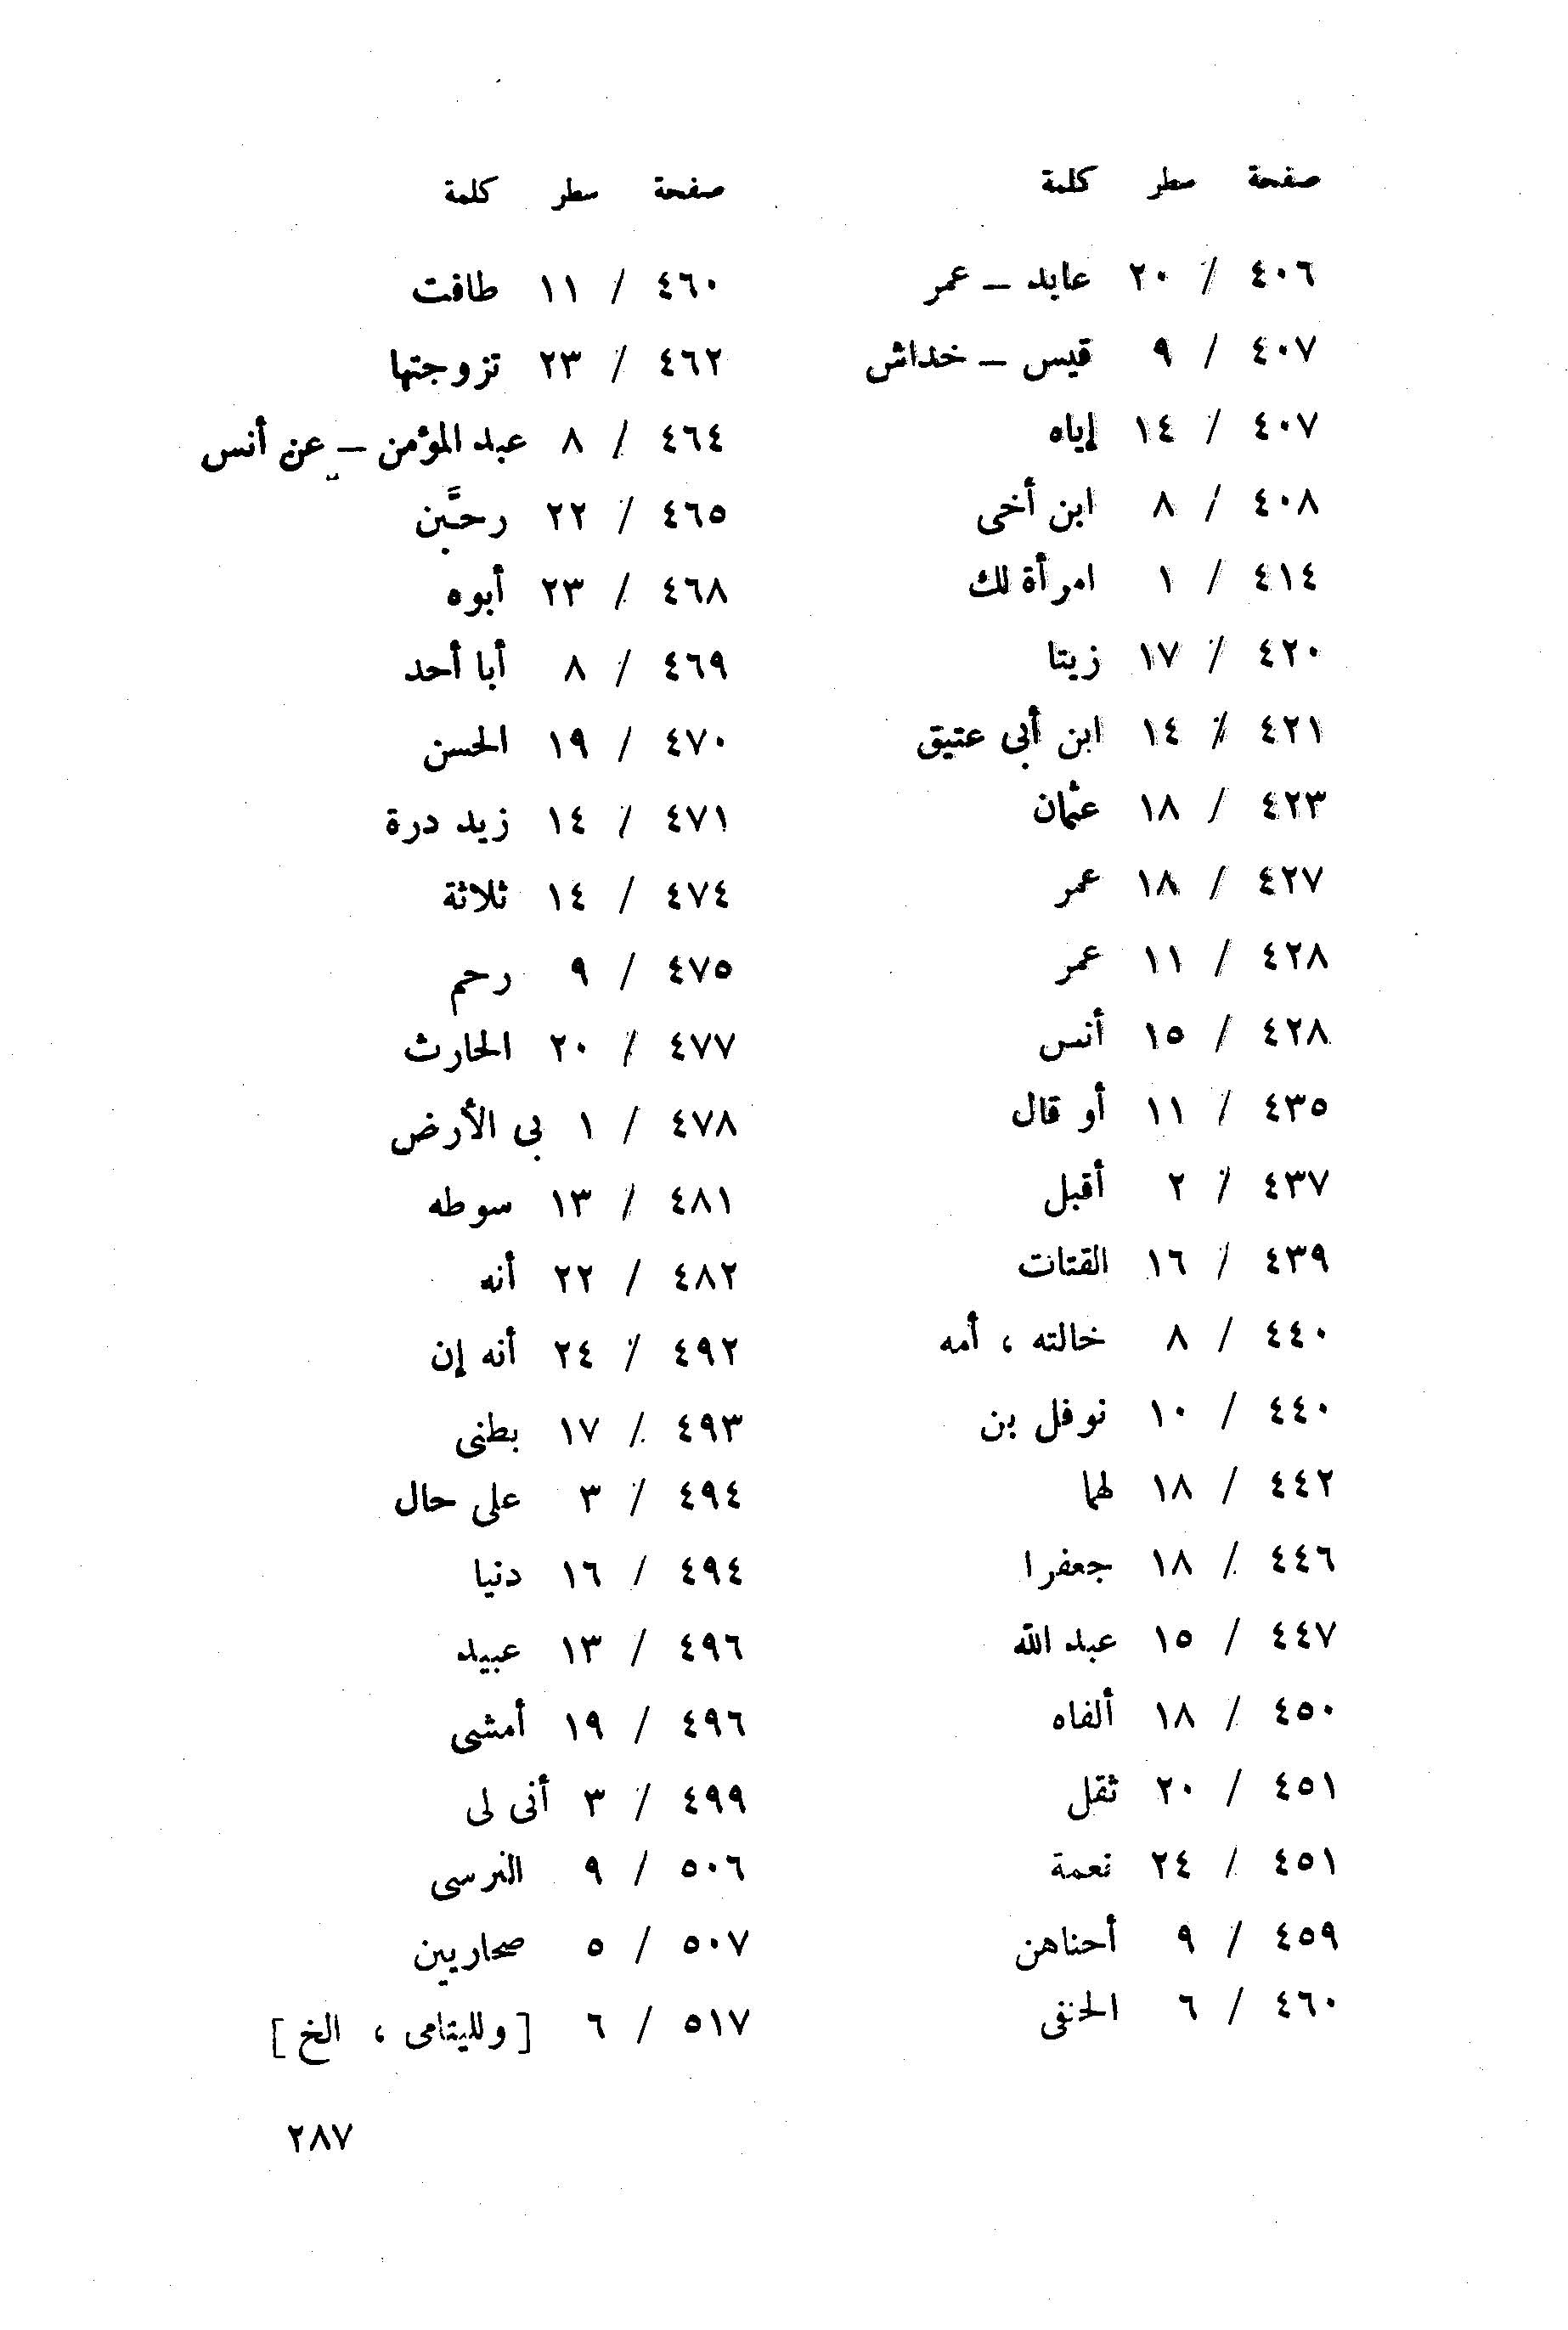 صفحة سطر كلمة
٤٠٦ / ٢٠ عايد ـ عمر
٤٠٧ / ٩ قيس ـ خداش
٤٠٧ / ١٤ إياه
٤٠٨ / ٨ ابن أخى
٤١٤ / ١ امرأة لك
٤٢٠ / ١٧ زيتا
٤٢١ / ١٤ ابن أبى عتيق
٤٢٣ / ١٨ عثمان
٤٢٧ / ١٨ عمر
٤٢٨ / ١١ عمر
٤٢٨ / ١٥ أنس
٤٣٥ / ١١ أو قال
٤٣٧ / ٢ أقبل
٤٣٩ / ١٦ القتات
٤٤٠ / ٨ خالته ، أمه
٤٤٠ / ١٠ نوفل بن
٤٤٢ / ١٨ لهما
٤٤٦ / ١٨ جعفرا
٤٤٧ / ١٥ عبد الله
٤٥٠ / ١٨ ألفاه
٤٥١ / ٢٠ ثقل
٤٥١ / ٢٤ نعمة
٤٥٩ / ٩ أحناهن
٤٦٠ / ٦ الحنفى
صفحة سطر كلمة
٤٦٠ / ١١ طافت
٤٦٢ / ٢٣ تزوجتها
٤٦٤ / ٨ عبد المؤمن ـ عن أنس
٤٦٥ / ٢٢
٤٦٨ / ٢٣ أبوه
٤٦٩ / ٨ أبا أحد
٤٧٠ / ١٩ الحسن
٤٧١ / ١٤ زيد درة
٤٧٤ / ١٤ ثلاثة
٤٧٥ / ٩ رحم
٤٧٧ / ٢٠ الحارث
٤٧٨ / ١ بى الأرض
٤٨١ / ١٣ سوطه
٤٨٢ / ٢٢ أنه
٤٩٢ / ٢٤ أنه إن
٤٩٣ / ١٧ بطنى
٤٩٤ / ٣ على حال
٤٩٤ / ١٦ دنيا
٤٩٦ / ١٣ عبيد
٤٩٦ / ١٩ أمشى
٤٩٩ / ٣ أنى لى
٥٠٦ / ٩ النرسى
٥٠٧ / ٥ صحاريين
٥١٧ / ٦ [ ولليتامى ، الخ ]
٢٨٧